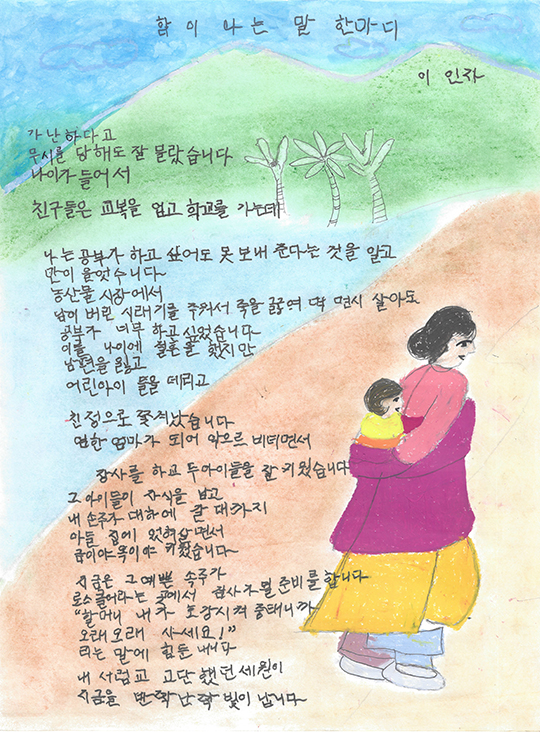 함이 나는 말 한마디
이 인자
가난하다고
무시를 당해도 잘 몰랐습니다
나이가 들어서
친구들은 교복을 입고 학교를 가는데
나는 공부가 하고 싶어도 못 보내 준다는 것을 알고
만이 울었수니다
농산물 시장에서
남이 버린 시래기를 주워서 죽을 끓여 먹 면서 살아도
공부가 너무 하고 싶었습니다
이를 나이에 결혼을 했지만
남편을 잃고
어린아이 둘을 데리고
친정으로 쫓겨났습니다
면한 엄마가 되어 악으르 버티면서
장사를 하고 두아이들을 잘 키웠습니다
그 아이들이 자식을 낳고
내 손주가 대하에 갈 대까지
아들 집에 얹혀살면서
금이야 옥이야 키웠습니다
지금은 그 예쁜 손주가
로스쿨이라는 곳에서 검사가 될 준비를 합니다
"할머니 내가 호강시켜 줄태니까
오래오래 사세요!"
라는 말에 힘든 내다
내 서럽고 고단 했던 세월이
지금을 반짝 반짝 빛이 납니다